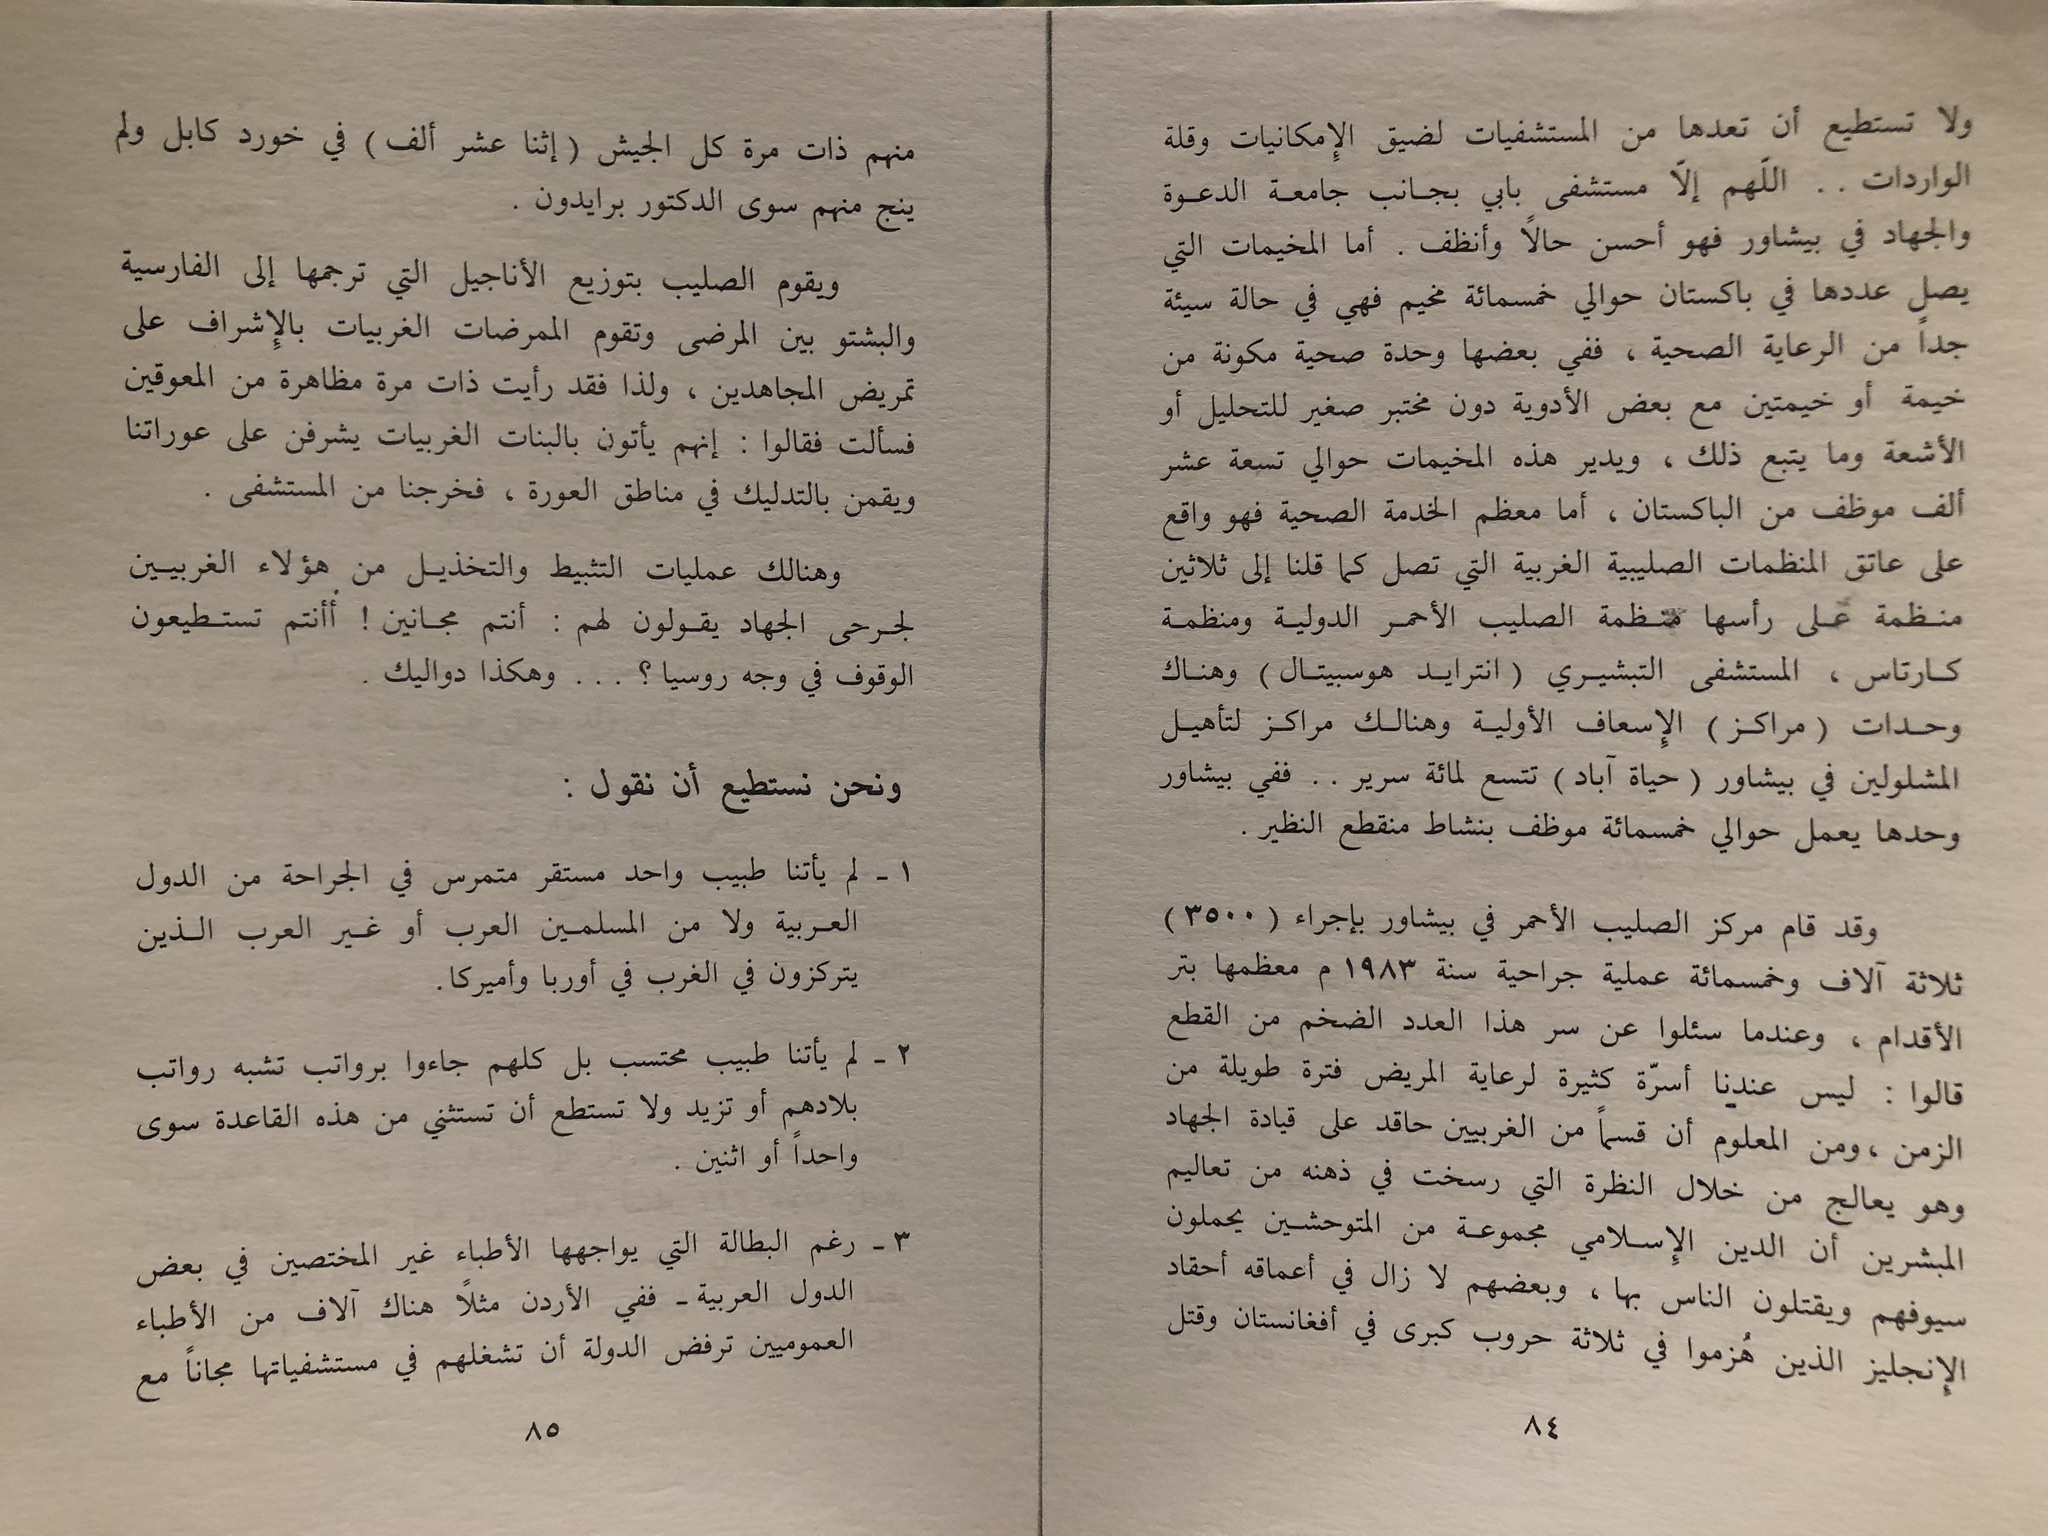 ولا تستطيع أن تعدها من المستشفيات لضيق الإِمكانيات وقلة
الواردات . . اللّهم إلاّ مستشفى بابي بجانب جامعة الدعوة
والجهاد في بيشاور فهو أحسن حالاً وأنظف . أما المخيمات التي
يصل عددها في باكستان حوالي خمسمائة مخيم فهي في حالة سيئة
جداً من الرعاية الصحية ، ففي بعضها وحدة صحية مكونة من
خيمة أو خيمتين مع بعض الأدوية دون مختبر صغير للتحليل أو
الأشعة وما يتبع ذلك ، ويدير هذه المخيمات حوالي تسعة عشر
ألف موظف من الباكستان ، أما معظم الخدمة الصحية فهو واقع
على عاتق المنظمات الصليبية الغربية التي تصل كما قلنا إلى ثلاثين
منظمة على رأسها منظمة الصليب الأحمر الدولية ومنظمة
كارتاس ، المستشفى التبشيري ( انترايد هوسبيتال ) وهناك
وحدات ( مراكز ) الإِسعاف الأولية وهنالك مراكز لتأهيل
المشلولين في بيشاور ( حياة آباد ) تتسع لمائة سرير . . ففي بيشاور
وحدها يعمل حوالي خمسمائة موظف بنشاط منقطع النظير .
وقد قام مركز الصليب الأحمر في بيشاور بإجراء ( ٣٥٠٠ )
ثلاثة آلاف وخمسمائة عملية جراحية سنة ١٩٨٣ م معظمها بتر
الأقدام ، وعندما سئلوا عن سر هذا العدد الضخم من القطع
قالوا : ليس عندنا أسرّة كثيرة لرعاية المريض فترة طويلة من
الزمن ، ومن المعلوم أن قسماً من الغربيين حاقد على قيادة الجهاد
وهو يعالج من خلال النظرة التي رسخت في ذهنه من تعاليم
المبشرين أن الدين الإِسلامي مجموعة من المتوحشين يحملون
سيوفهم ويقتلون الناس بها ، وبعضهم لا زال في أعماقه أحقاد
الإِنجليز الذين هُزموا في ثلاثة حروب كبرى في أفغانستان وقتل
٨٤
منهم ذات مرة كل الجيش ( إثنا عشر ألف ) في خورد كابل ولم
ينج منهم سوى الدكتور برايدون .
ويقوم الصليب بتوزيع الأناجيل التي ترجمها إلى الفارسية
والبشتو بين المرضى وتقوم الممرضات الغربيات بالإِشراف على
تمريض المجاهدين ، ولذا فقد رأيت ذات مرة مظاهرة من المعوقين
فسألت فقالوا : إنهم يأتون بالبنات الغربيات يشرفن على عوراتنا
ويقمن بالتدليك في مناطق العورة ، فخرجنا من المستشفى .
وهنالك عمليات التثبيط والتخذيل من هؤلاء الغربيين
لجرحى الجهاد يقولون لهم : أنتم مجانين ! أأنتم تستطيعون
الوقوف في وجه روسيا ؟ . . . وهكذا دواليك .
ونحن نستطيع أن نقول :
١ ـ لم يأتنا طبيب واحد مستقر متمرس في الجراحة من الدول
العربية ولا من المسلمين العرب أو غير العرب الذين
يتركزون في الغرب في أوربا وأميركا .
٢ ـ لم يأتنا طبيب محتسب بل كلهم جاءوا برواتب تشبه رواتب
بلادهم أو تزيد ولا تستطع أن تستثني من هذه القاعدة سوى
واحداً أو اثنين .
٣ ـ رغم البطالة التي يواجهها الأطباء غير المختصين في بعض
الدول العربية ـ ففي الأردن مثلاً هناك آلاف من الأطباء
العموميين ترفض الدولة أن تشغلهم في مستشفياتها مجاناً مع
٨٥